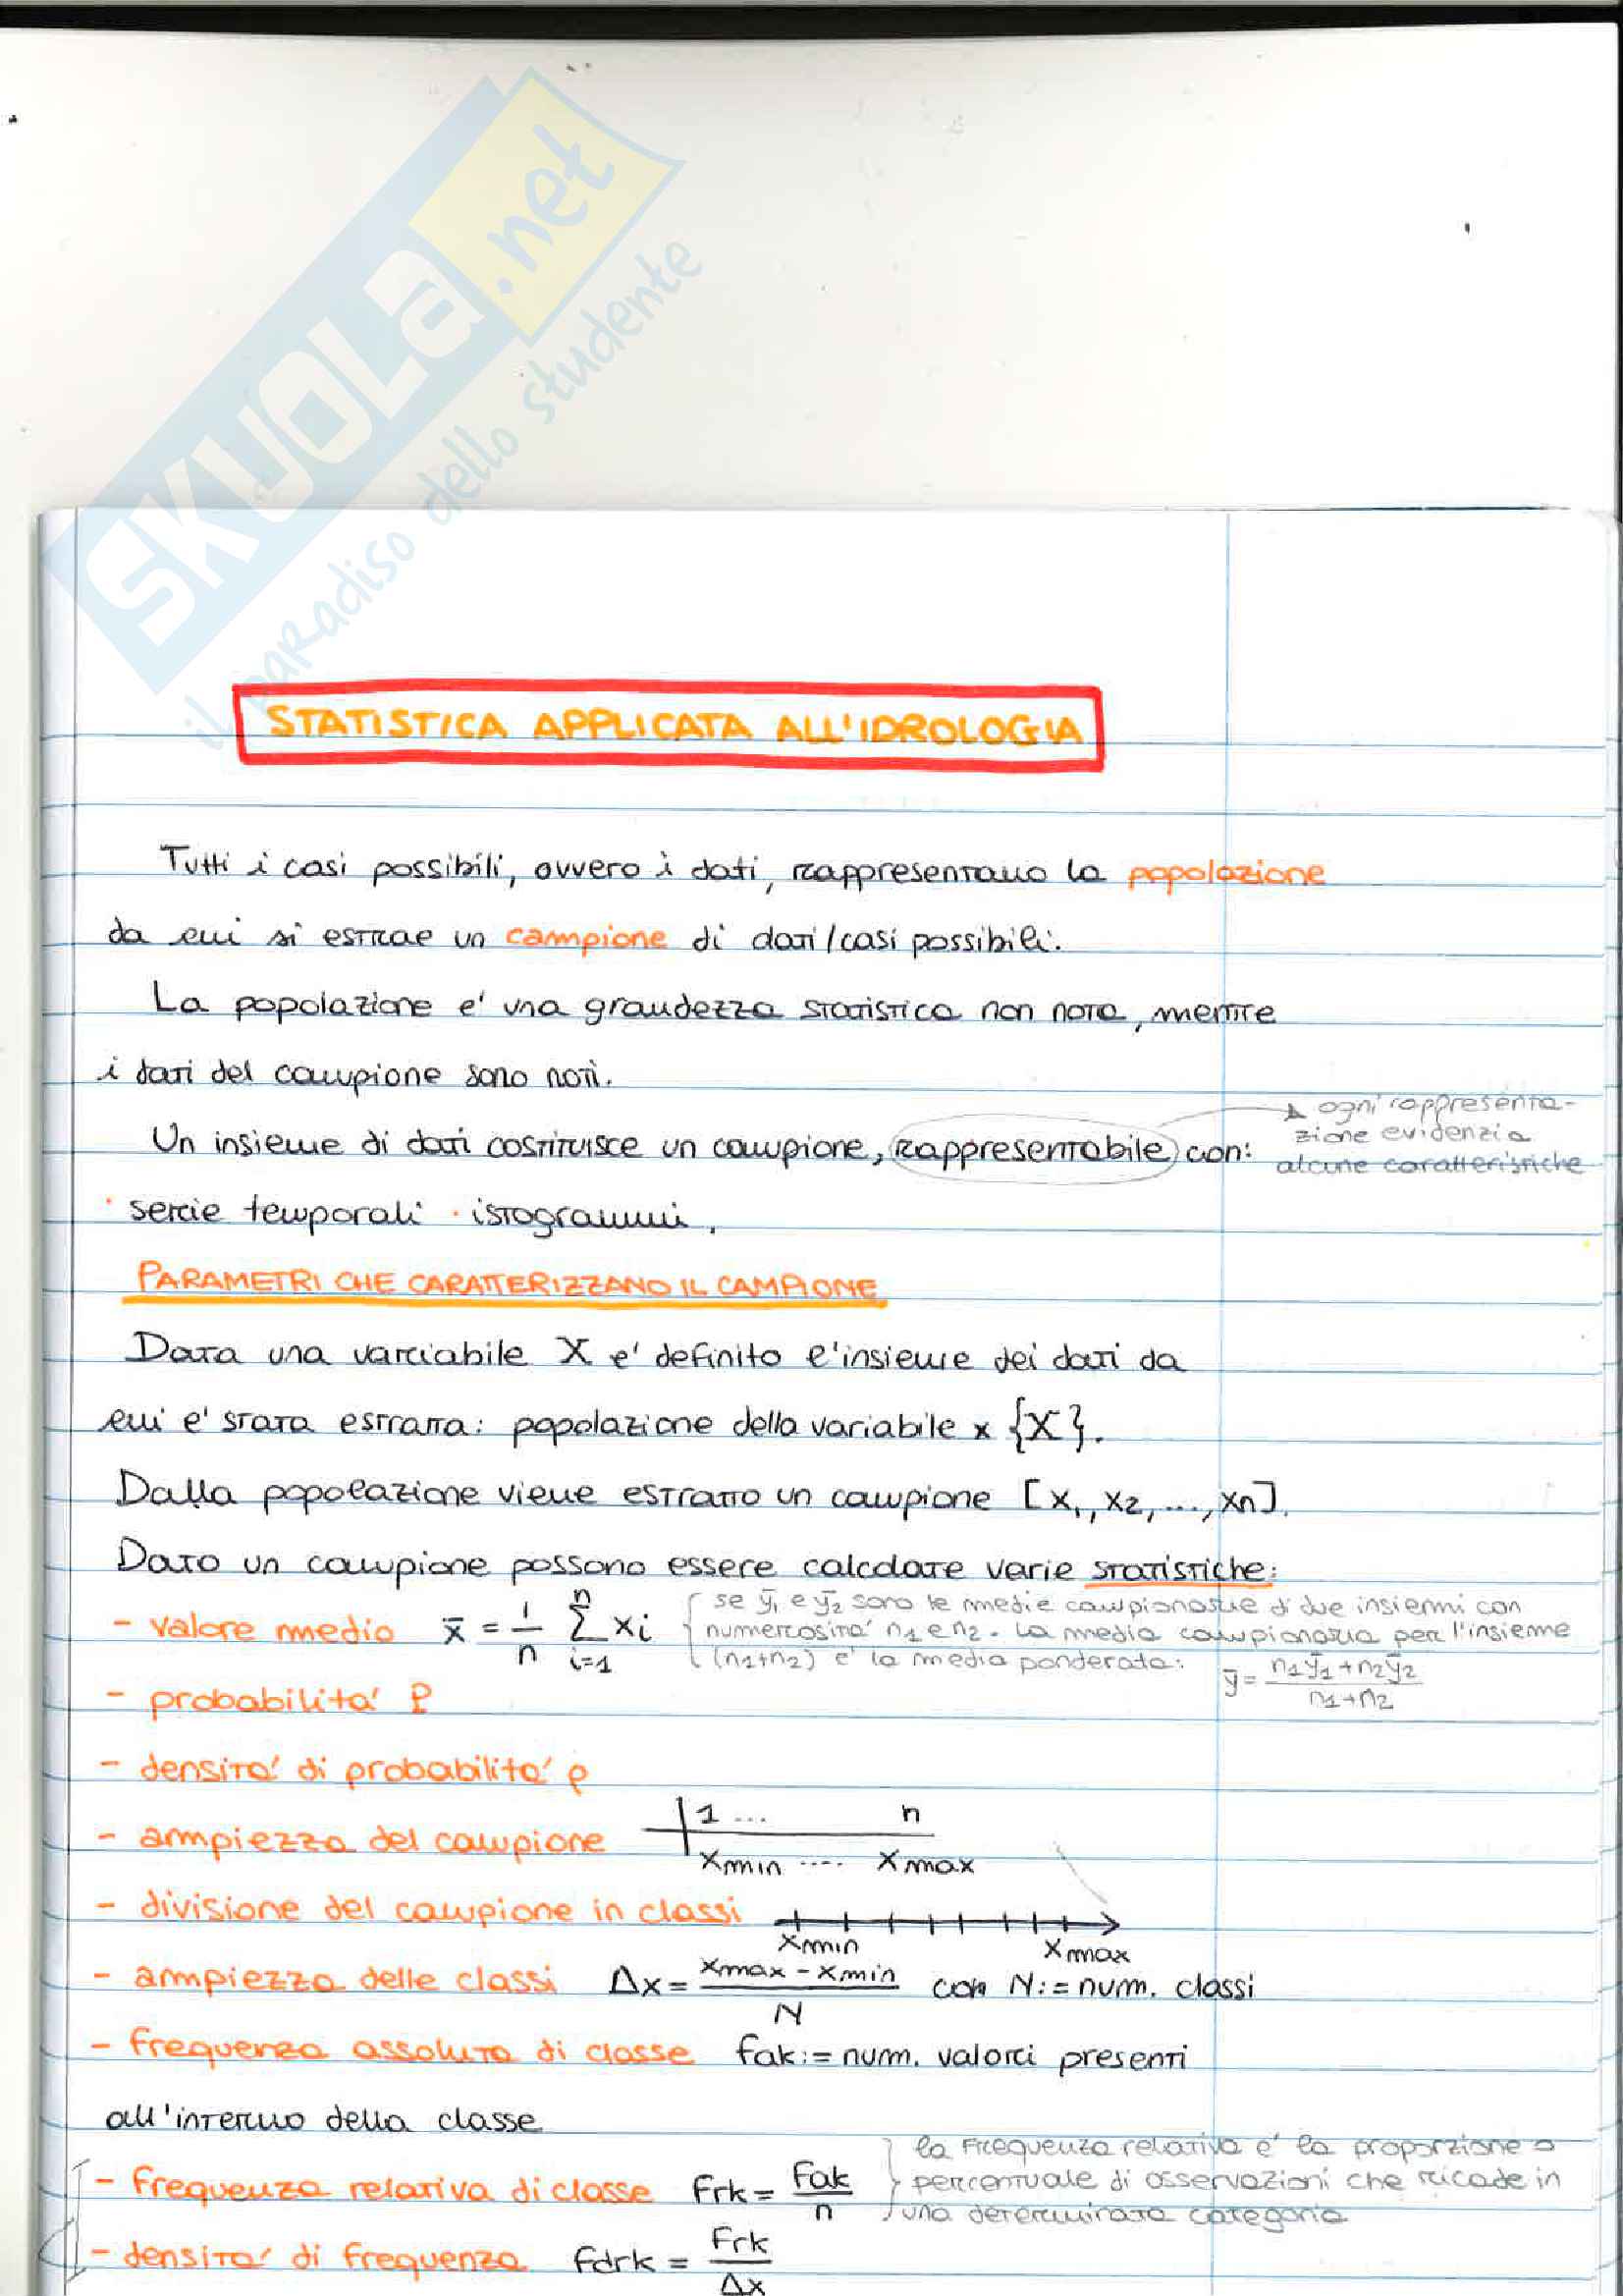 SKUOLA.net
il paradiso dello studente
STATISTICA APPLICATA ALL'IDROLOGIA
Tutti i casi possibili, ovvero i dati, rappresentano la popolazione
da cui si estrae un campione di dati/casi possibili.
La popolazione e' una grandezza statistica non nota, mentre
i dati del campione sono noti.
Un insieme di dati costituisce un campione, rappresentabile con:
ogni rappresenta-
zione evidenzia
alcune caratteristiche
· serie temporali · istogrammi.
PARAMETRI CHE CARATTERIZZANO IL CAMPIONE
Data una variabile X e' definito l'insieme dei dati da
cui e' stata estratta: popolazione della variabile x {X}.
Dalla popolazione viene estratto un campione [x1, x2, ..., xn].
Dato un campione possono essere calcolate varie statistiche:
- valore medio x̄ = 1/n Σ(i=1, n) xi
se ȳ1 e ȳ2 sono le medie campionarie di due insiemi con
numerosita' n1 e n2. La media campionaria per l'insieme
(n1+n2) e' la media ponderata: ȳ = (n1ȳ1 + n2ȳ2)/(n1+n2)
- probabilita' P
- densita' di probabilita' p
- ampiezza del campione 1 ... n
xmin .... xmax
- divisione del campione in classi
xmin xmax
- ampiezza delle classi Δx = (xmax - xmin)/N con N:= num. classi
- frequenza assoluta di classe fak:= num. valori presenti
all'interno della classe
- frequenza relativa di classe frk = fak/n
la frequenza relativa e' la proporzione o
percentuale di osservazioni che ricade in
una determinata categoria
- densita' di frequenza fdrk = frk/Δx